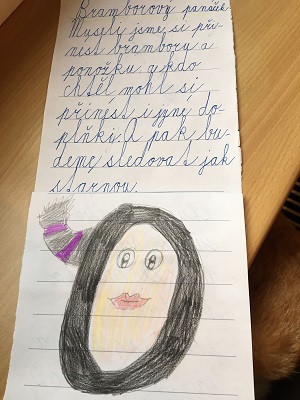 Bramborový panáček
Museli jsme si při-
nest brambory a
ponožku a kdo
chtěl mohl si
přinést i jiné do-
plňki. A pak bu-
deme sledovat jak
starnou.